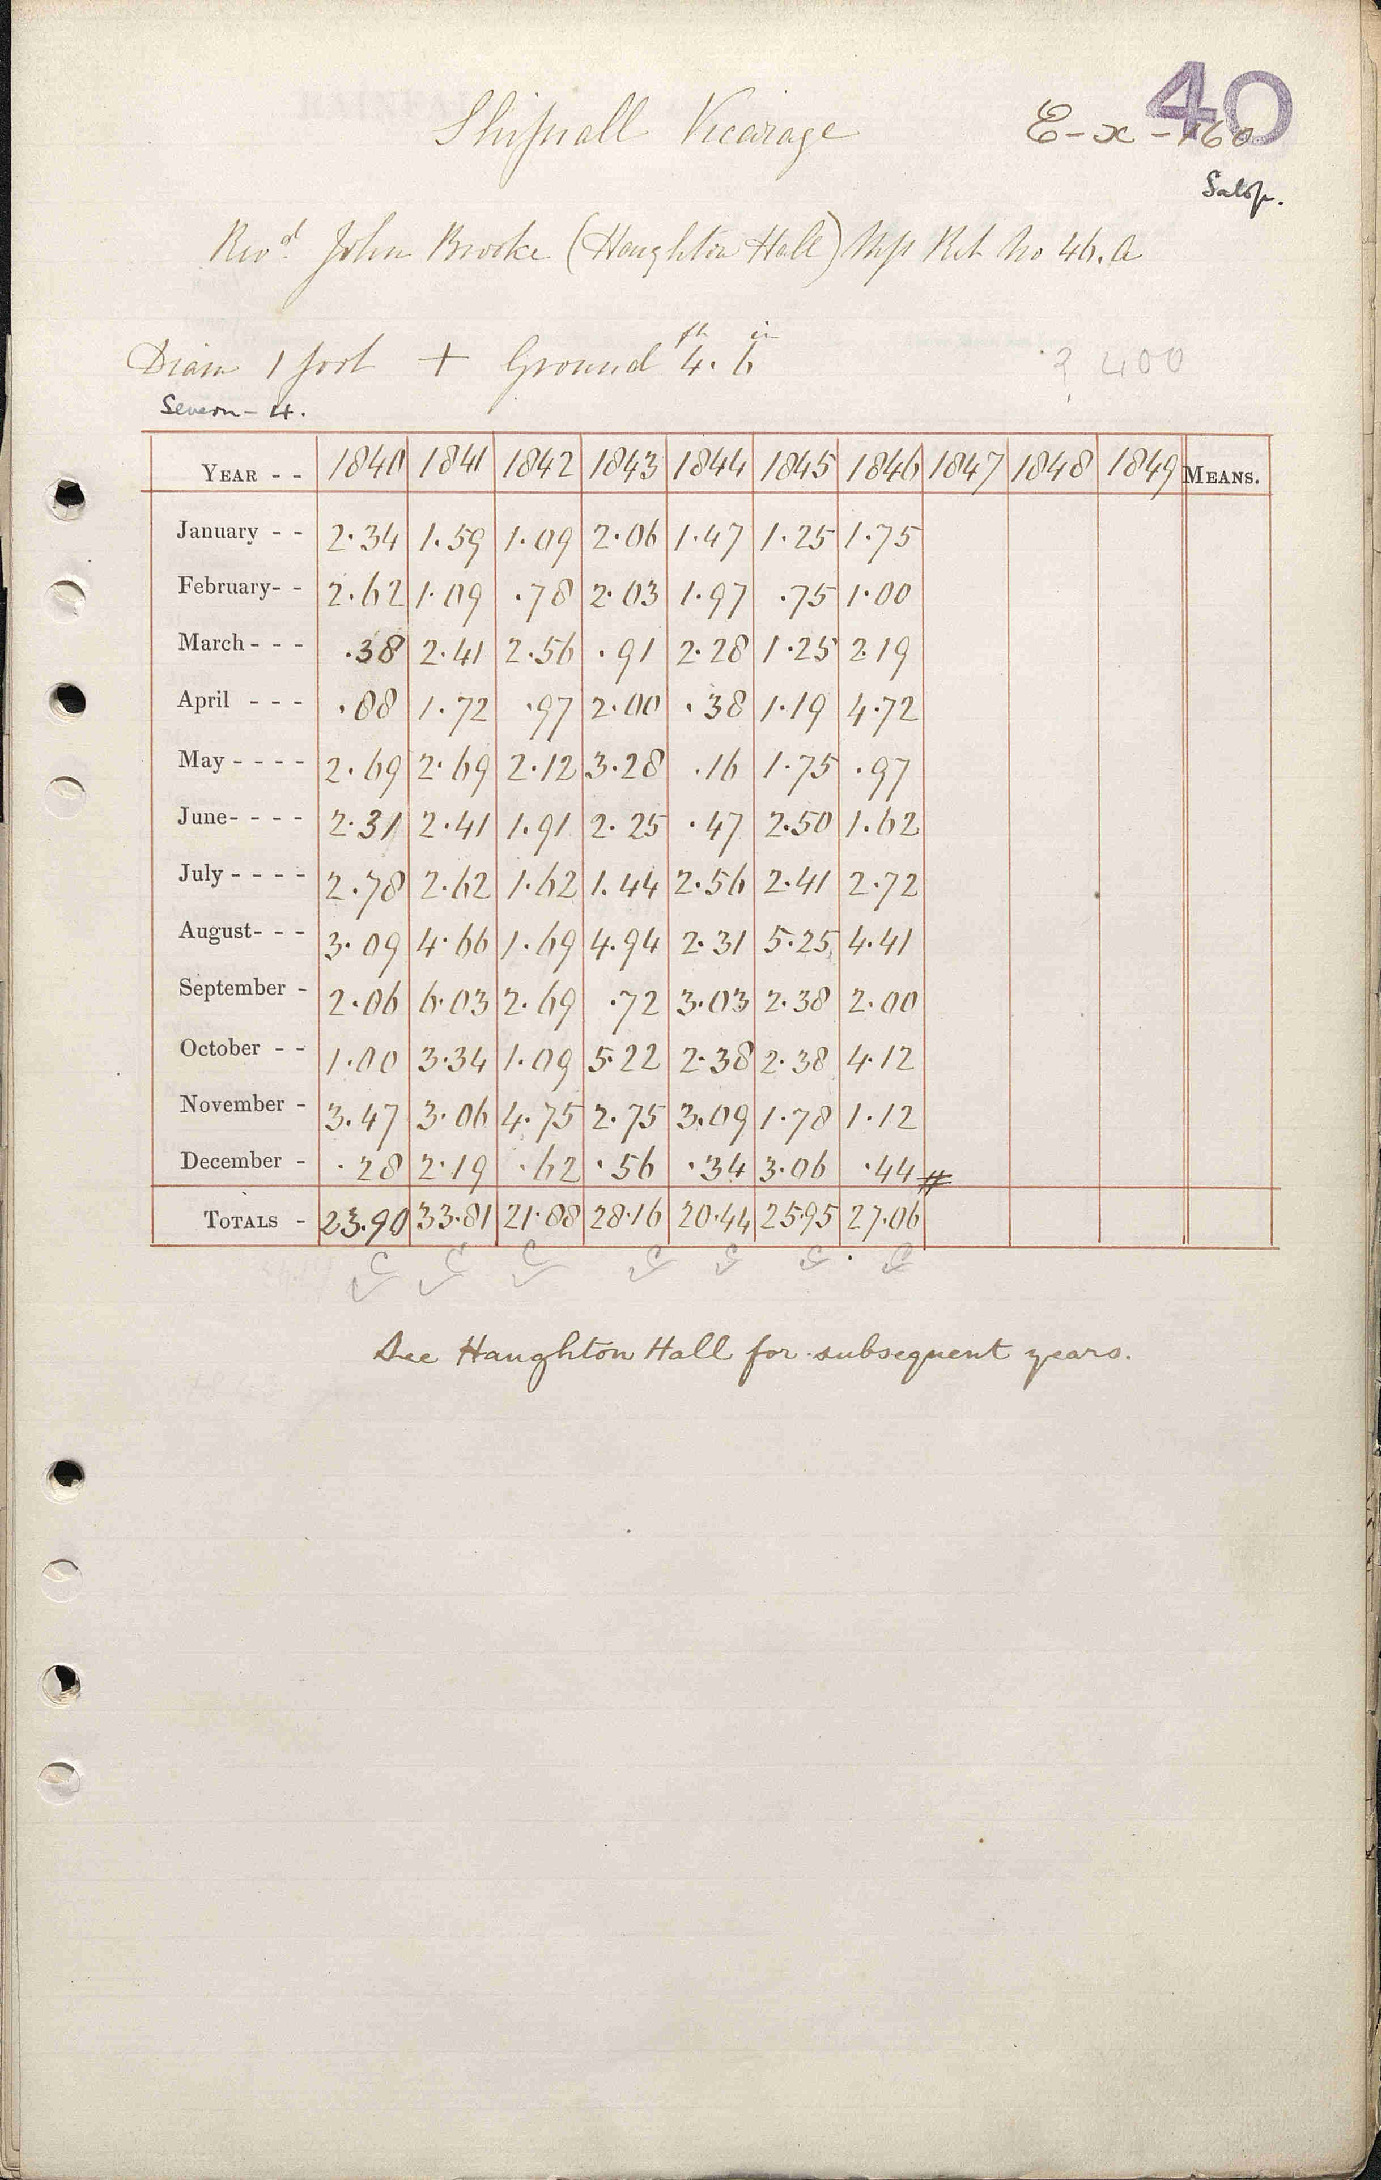 40
Shifnall Vicarage E-x-160
Salop.
Revd John Brooke (Haughton Hall) Mss Ret No 46.a
Diam 1 foot + Ground 4 ft. 6 in ? 400
Severn - 4.
YEAR - - 1840 1841 1842 1843 1844 1845 1846 1847 1848 1849 MEANS.
January - - 2.34 1.59 1.09 2.06 1.47 1.25 1.75
February- - 2.62 1.09 .78 2.03 1.97 .75 1.00
March - - - .38 2.41 2.56 .91 2.28 1.25 2.19
April - - - .88 1.72 .97 2.00 .38 1.19 4.72
May - - - - 2.69 2.69 2.12 3.28 .16 1.75 .97
June- - - - 2.31 2.41 1.91 2.25 .47 2.50 1.62
July - - - - 2.78 2.62 1.62 1.44 2.56 2.41 2.72
August- - - 3.09 4.66 1.69 4.94 2.31 5.25 4.41
September - 2.06 6.03 2.69 .72 3.03 2.38 2.00
October - - 1.00 3.34 1.09 5.22 2.38 2.38 4.12
November - 3.47 3.06 4.75 2.75 3.09 1.78 1.12
December - .28 2.19 .62 .56 .34 3.06 .44 #
TOTALS - 23.90 33.81 21.88 28.16 20.44 25.95 27.06
See Haughton Hall for subsequent years.